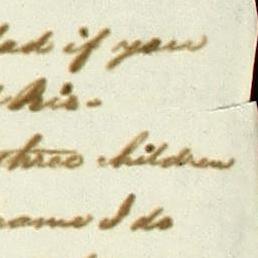 if you
his-
three children
name I do